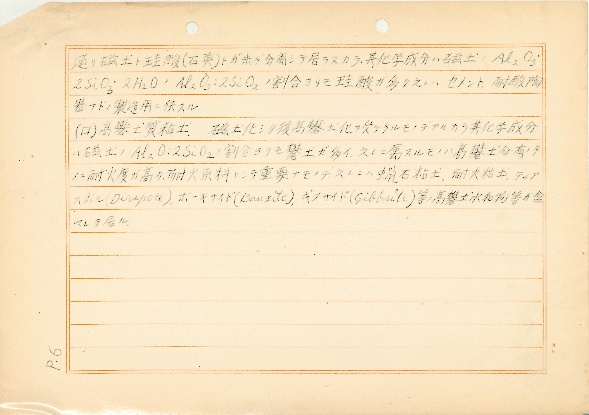 通リ磁土ト珪酸(石英)トガ未ダ分離シテ居ラヌカラ、其化学成分ハ磁土ノ Al₂O₃·
2SiO₂·2H₂O ノ Al₂O₃:2SiO₂ ノ割合ヨリモ珪酸ガ多ク、セメント、耐酸陶
器ナドノ製造用ニ供スル
(ロ)高礬土質粘土. 磁土化シタ後高礬土化ヲ受ケタルモノデアルカラ其化学成分
ハ磁土ノ Al₂O₃:2SiO₂ ノ割合ヨリモ礬土ガ多イ、之ニ属スルモノハ高礬土
ニ耐火度ガ高ク、耐火原料トシテ重要ナモノデ 粘土、耐火粘土、ディア
スポル(Diaspore) ボーキサイト(Bauxite)、ギブサイト(Gibbsite)等ノ高礬土水和物等ガ含
居ル.
P.6